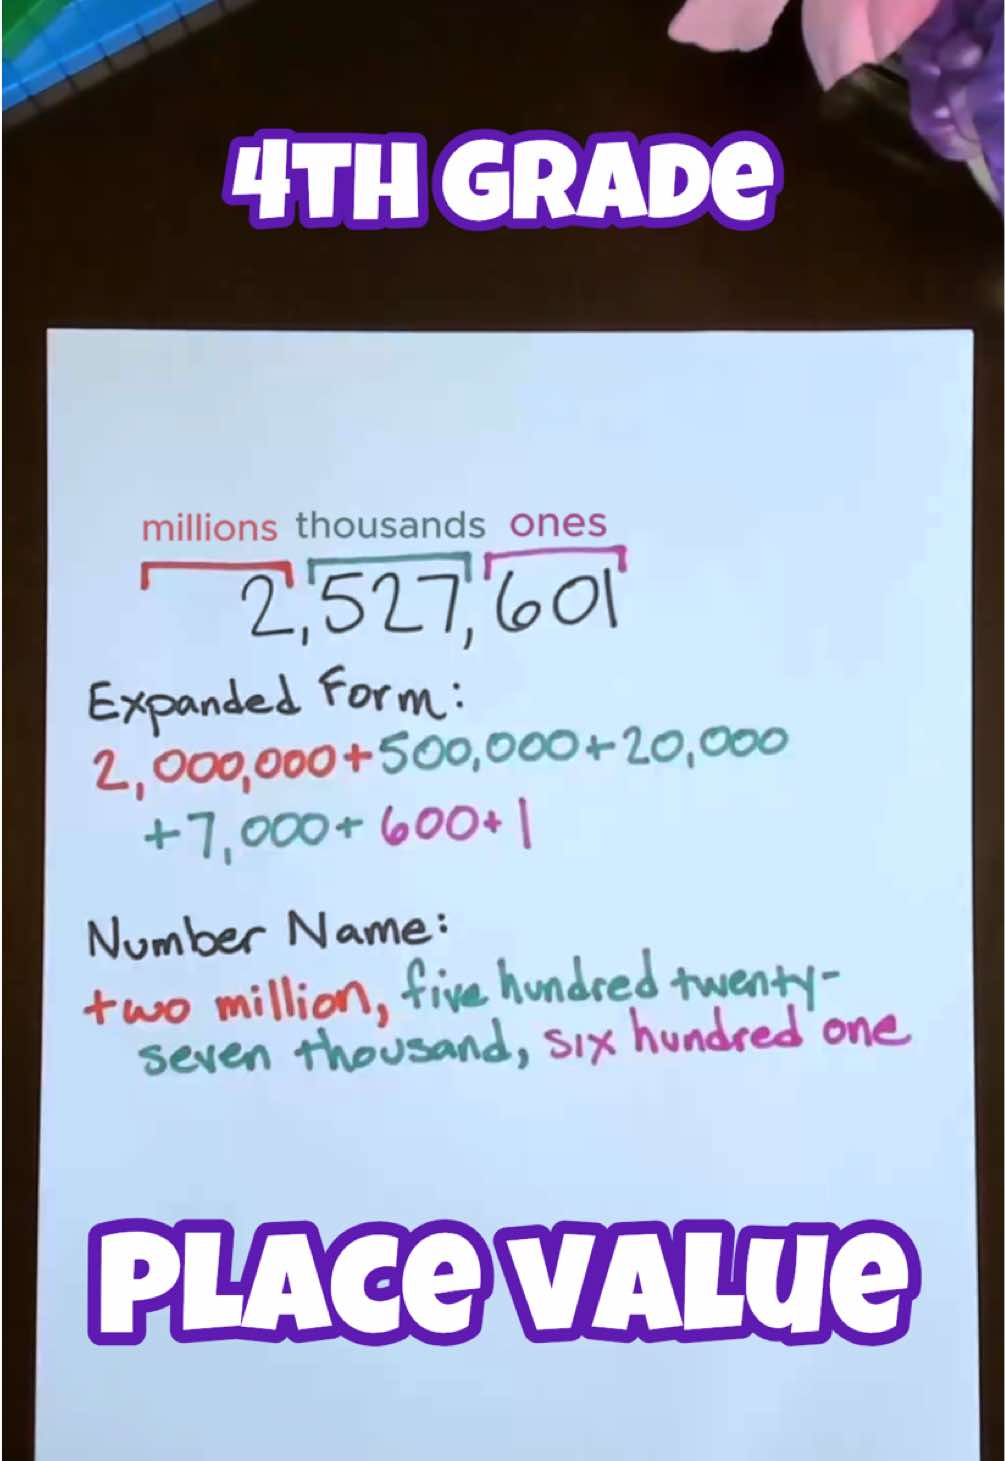 4TH GRADE
millions thousands ones
2,527,601
Expanded Form:
2,000,000+500,000+20,000
+7,000+600+1
Number Name:
two million, five hundred twenty-
seven thousand, six hundred one
PLACE VALUE